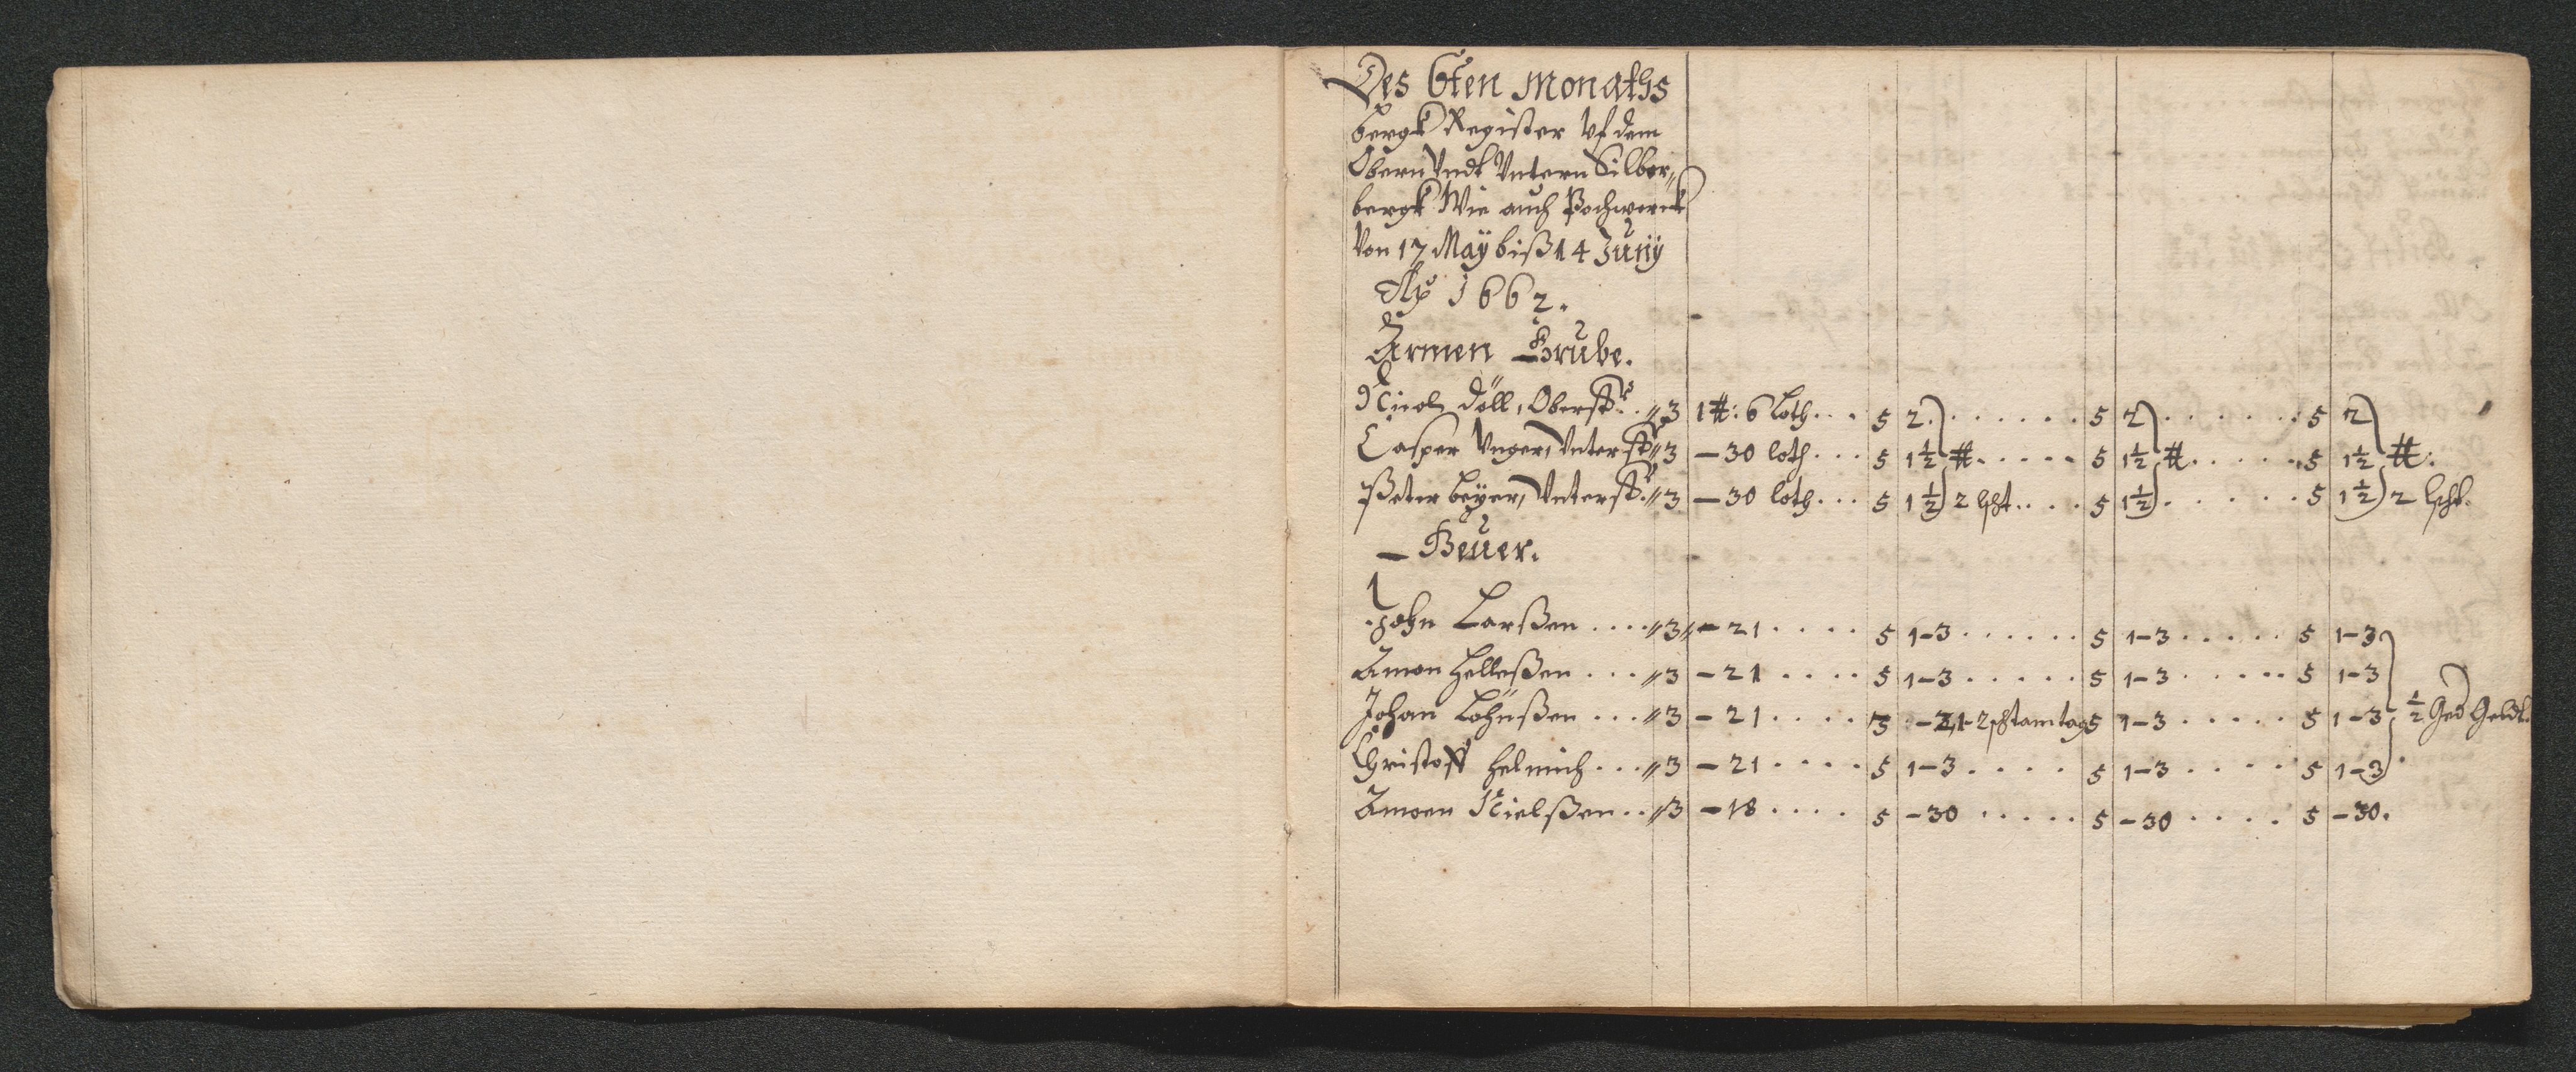 Des 6ten Monaths
bergk Register vf dem
Obern Undt Untern Silber„
bergk Wie auch Pochwerck
Von 17 Maÿ biß 14 Junÿ
Ao 1662.
Armen Grube.
Nicol Döll, Oberst. „3 1 #: 6 Loth... 5 2....... 5 2....... 5 2
Casper Unger, Unterst. „3 – 30 loth... 5 1½ #..... 5 1½ #...... 5 1½ #.
Peter beÿer, Unterst. „3 – 30 loth... 5 1½ 2 lßt.... 5 1½...... 5 1½ 2 lßt.
– Heüer.
John Larßen .... „3„ – 21 .... 5 1–3 ...... 5 1–3 ..... 5 1–3
Amon Helleßen ... „3 – 21 .... 5 1–3 ..... 5 1–3 ..... 5 1–3
Johan ... „3 – 21 .... 3 –21 5 1–3 ..... 5 1–3 ½ Ged Geldt.
Christoff Helmich ... „3 – 21 .... 5 1–3 .... 5 1–3 .... 5 1–3
Amoen Nielßen .. „3 – 18 .... 5 –30 ..... 5 –30 .... 5 –30.